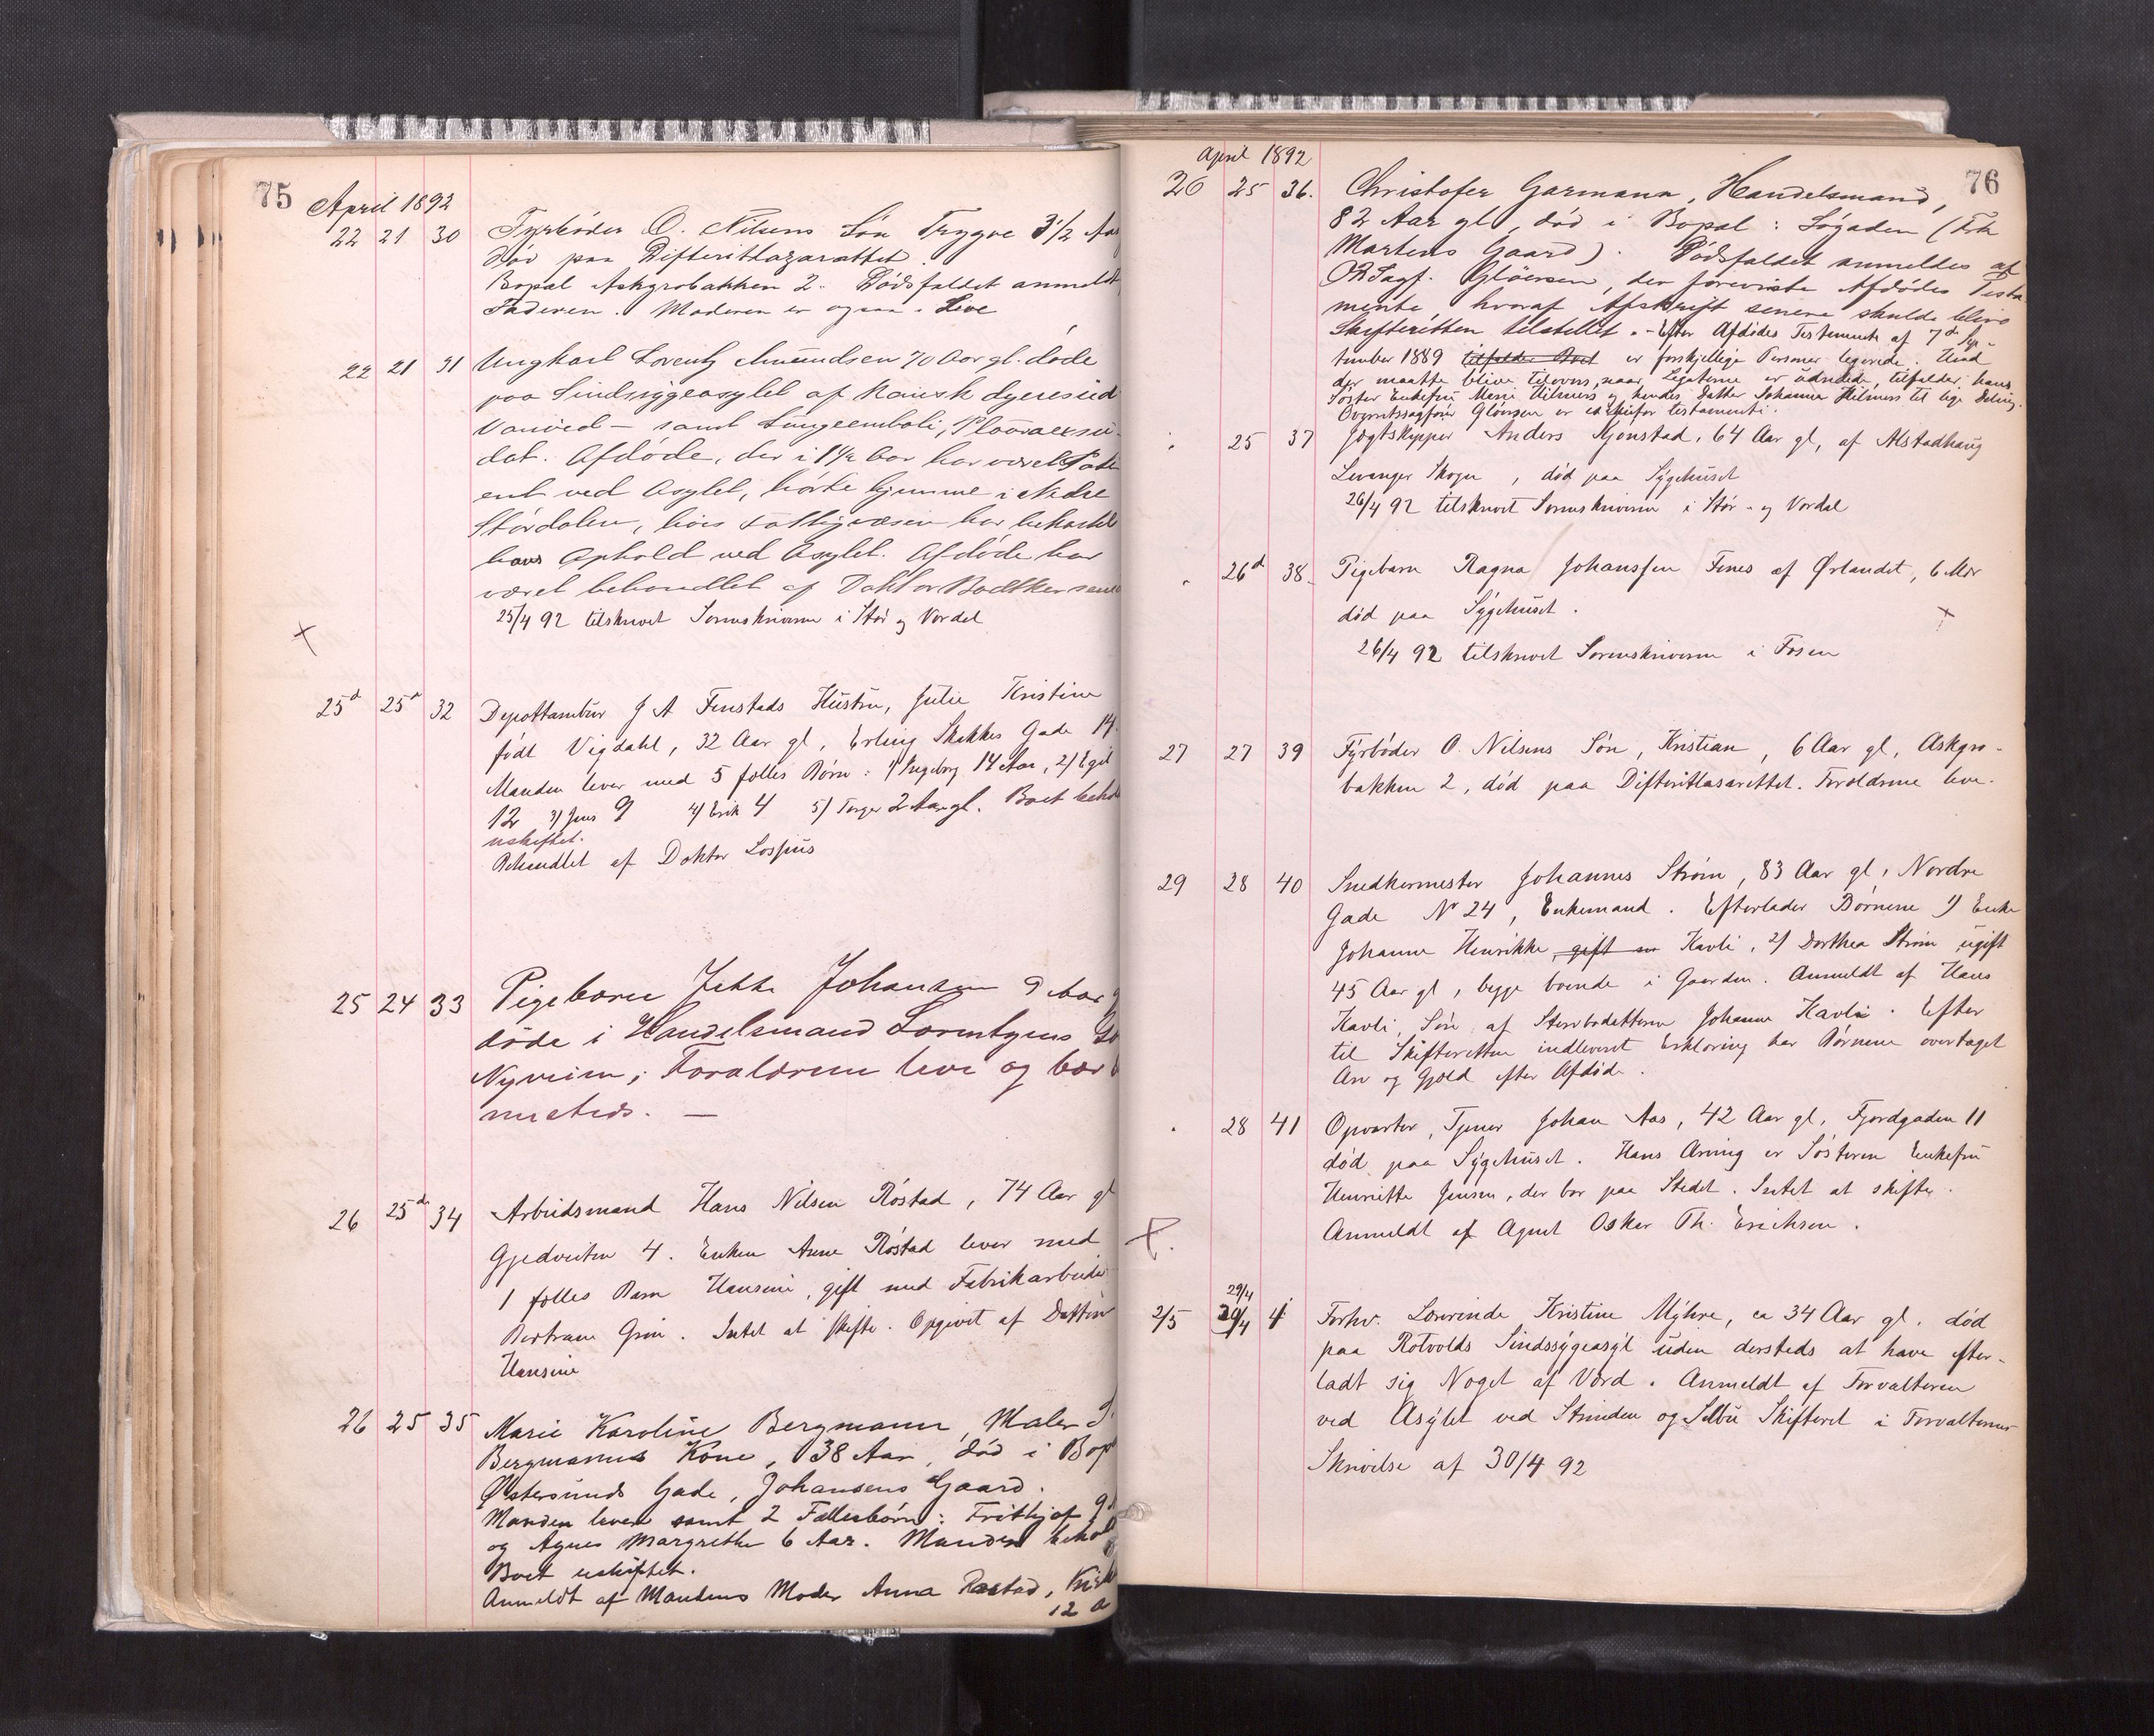 75
April 1892
22 21 30 Fyrbøder O. Nilsens Søn Trygve 3 1/2 Aar
død paa Difteritlazarettet.
Bopæl Askgrobakken 2. Dødsfaldet anmeldt
Faderen. Moderen er ogsaa i Live
22 21 31 Ungkarl Lorentz Amundsen 70 Aar gl. døde
paa Sindssygeasylet af
Vanvid — samt Lungeemboli, Pleuraexsu-
dat. Afdøde, der i 1 1/2 Aar har været Pati
ent ved Asylet, hørte hjemme i Nedre
Stördalen, hvis Fattigvæsen har bekostet
hans Ophold ved Asylet. Afdøde har
været behandlet af Doktor Bødtker
25/4 92 tilskrevet Sorenskriveren i Stør og Værdal
25d 25d 32 Depottambur J A Finstads Hustru, Julie Kristine
født Vigdahl, 32 Aar gl, Erling Skakkes Gade 14.
Manden lever med 5 fælles Børn: 1) Ingeborg 14 Aar, 2) Egil
12 3) Jens 9 4) Erik 4 5) Torger 2 Aar gl. Boet behol
uskiftet.
Behandlet af Doktor Lossius
25 24 33 Pigebarn Johansen 9 Aar
døde i Handelsmand Lorentzens
Nyveien; Forældrene leve og bor
— 
26 25de 34 Arbeidsmand Hans Nilsen Røstad, 74 Aar gl
Gjedveiten 4. Enken Anne Røstad lever med
1 fælles Barn Hansine, gift med Fabrikarbeider
Bertram Grøn. Intet at skifte. Opgivet af Datteren
Hansine
26 25 35 Marie Karoline Bergmann, Maler
Bergmanns Kone, 38 Aar, død i Bop
Østersunds Gade, Johansens Gaard.
Manden lever samt 2 Fællesbørn: Frithjof 9
og Agnes Margrethe 6 Aar. Manden behol
Boet uskiftet.
Anmeldt af Mandens Moder Anna Rostad,
12 a
76
April 1892
26 25 36. Christofer Garmann, Handelsmand,
82 Aar gl, død i Bopæl: Søgaden (Frk
Martens Gaard). Dødsfaldet anmeldes af
ORSagf. Gløersen, der foreviste Afdødes Testa
mente, hvoraf Afskrift senere skulde blive
Skifteretten tilstillet. - Efter Afdødes Testamente af 7de Sep-
tember 1889 tilfalder Boet er forskjellige Personer legerede. Hvad
der maatte blive tilovers, naar Legaterne er udredede, tilfalder hans
Søster Enkefru Marie Hilmers og hendes Datter Johanna Hilmers til lige Deling.
Overretssagfører Gløersen er executor testamenti.
" 25 37 Jægtskipper Anders Kjønstad, 64 Aar gl, af Alstadhaug
Levanger Skogn, død paa Sygehuset
26/4 92 tilskrevet Sorenskriveren i Stør- og Værdal
" 26d 38 Pigebarn Ragna Johanssen Fines af Ørlandet, 6 Mdr
død paa Sygehuset.
26/4 92 tilskrevet Sorenskriveren i Fosen
27 27 39 Fyrbøder O. Nilsens Søn, Kristian, 6 Aar gl, Askgro-
bakken 2, død paa Difteritlasarettet. Forældrene leve.
29 28 40 Snedkermester Johannes Strøm, 83 Aar gl, Nordre
Gade No 24, Enkemand. Efterlader Børnene 1) Enke
Johanne Henrikke, gift m Kavli, 2) Dorthea Strøm, ugift
45 Aar gl, begge boende i Gaarden. Anmeldt af Hans
Kavli, Søn af Stervbodatteren Johanne Kavli. Efter
til Skifteretten indleveret Erklæring har Børnene overtaget
Arv og Gjæld efter Afdøde.
" 28 41 Opvarter, Tjener Johan Aas, 42 Aar gl, Fjordgaden 11
død paa Sygehuset. Hans Arving er Søsteren Enkefru
Henriette Jensen, der bor paa Stedet. Intet at skifte.
Anmeldt af Agent Oskar Th. Erichsen.
29/4
2/5 29/4 Forhv. Lærerinde Kristine Myhre, ca 34 Aar gl, død
paa Rotvolds Sindssygeasyl uden dersteds at have efter-
ladt sig Noget af Værd. Anmeldt af Forvalteren
ved Asylet ved Strinden og Selbu Skifteret i Forvalterens
Skrivelse af 30/4 92